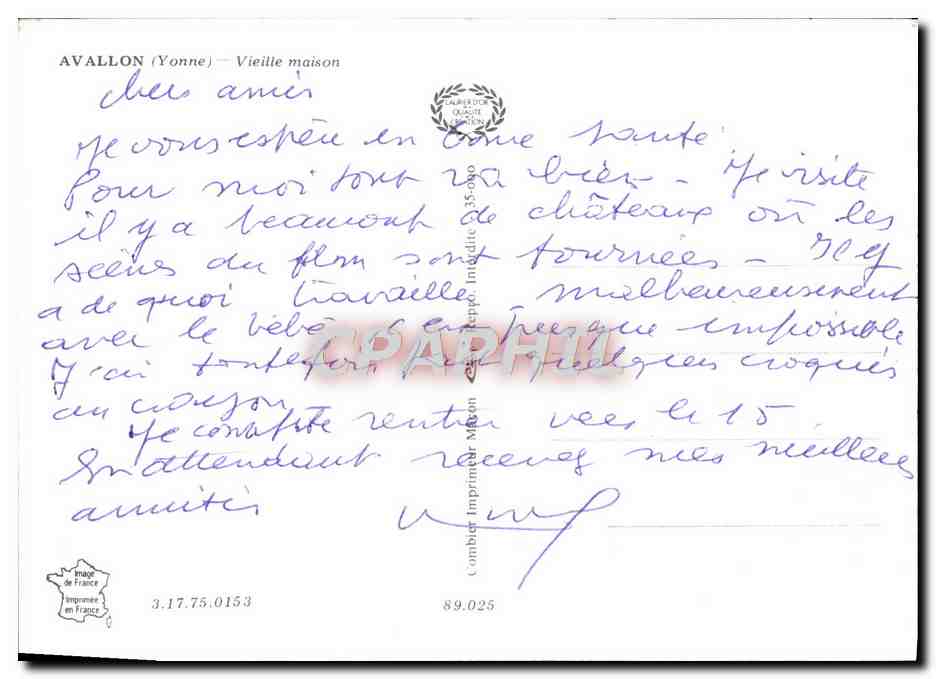 AVALLON (Yonne) — Vieille maison
Chers amis
LAURIER D'OR
QUALITÉ
CRÉATION
Je vous espère en bonne santé.
Pour moi tout va bien - Je visite
il y a beaucoup de châteaux où les
scènes du film sont tournées - Il y
a de quoi travailler - malheureusement
avec le bébé c'est presque impossible
J'ai toutefois fait quelques croquis
au crayon -
Je compte rentrer vers le 15.
En attendant recevez mes meilleures
amitiés
Combier Imprimeur Macon
Repro. Interdite 35-000
CPAPHIL
Image
de France
Imprimée
en France
3.17.75.0153
89.025